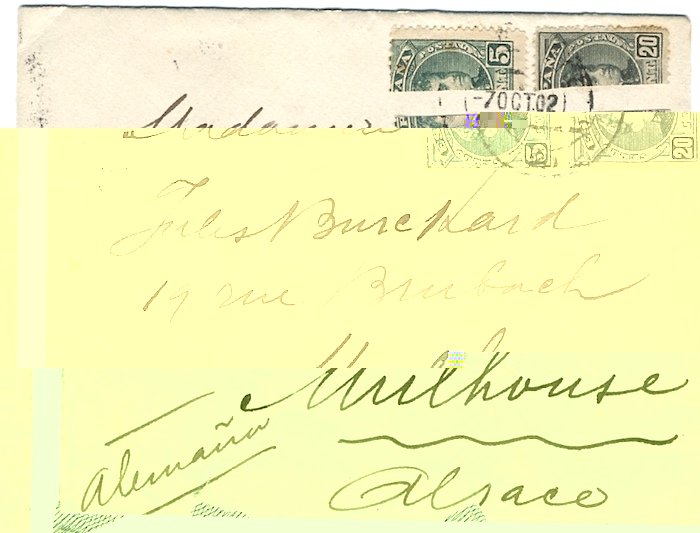 ESPAÑA POSTAL 5 ESPAÑA 20
(-7OCT.02)
5 20
Madame
Jules Burckard
19 rue Brubach
Mulhouse
Alemaña
Alsace